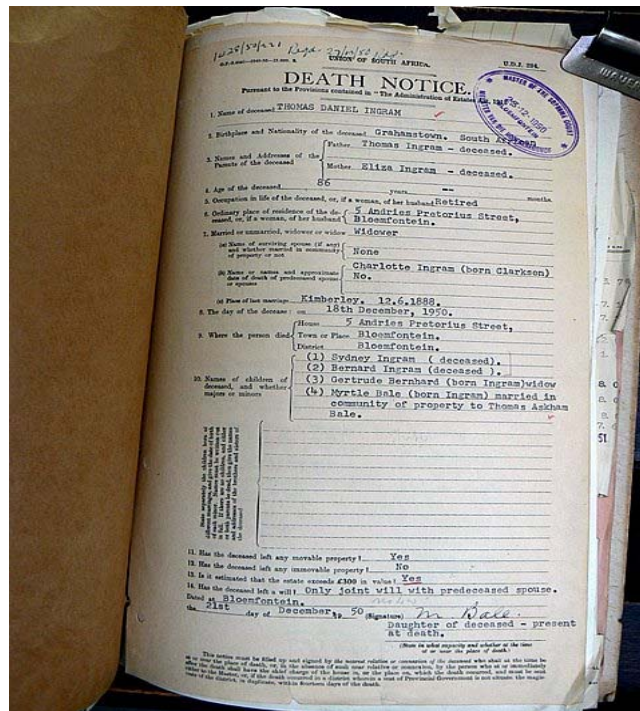 UNION OF SOUTH AFRICA.
U.D.J. 294.
DEATH NOTICE.
Pursuant to the Provisions contained in "The Administration of Estates Act, 1913
MASTER OF THE SUPREME COURT
28-12-1950
BLOEMFONTEIN
1. Name of deceased THOMAS DANIEL INGRAM
2. Birthplace and Nationality of the deceased Grahamstown. South African
3. Names and Addresses of the Parents of the deceased
Father Thomas Ingram - deceased.
Mother Eliza Ingram - deceased.
4. Age of the deceased 86 years -- months.
5. Occupation in life of the deceased, or, if a woman, of her husband Retired
6. Ordinary place of residence of the deceased, or, if a woman, of her husband
5 Andries Pretorius Street,
Bloemfontein.
7. Married or unmarried, widower or widow Widower
(a) Name of surviving spouse (if any) and whether married in community of property or not
None
(b) Name or names and approximate date of death of predeceased spouse or spouses
Charlotte Ingram (born Clarkson)
No.
(c) Place of last marriage Kimberley. 12.6.1888.
8. The day of the decease: on 18th December, 1950.
9. Where the person died
House 5 Andries Pretorius Street,
Town or Place Bloemfontein.
District Bloemfontein.
10. Names of children of deceased, and whether majors or minors
(1) Sydney Ingram ( deceased).
(2) Bernard Ingram (deceased ).
(3) Gertrude Bernhard (born Ingram)widow
(4) Myrtle Bale (born Ingram) married in
community of property to Thomas Askham
Bale.
11. Has the deceased left any movable property? Yes
12. Has the deceased left any immovable property? No
13. Is it estimated that the estate exceeds £300 in value? Yes
14. Has the deceased left a will? Only joint will with predeceased spouse.
Dated at Bloemfontein.
the 21st day of December, 19 50 (Signature) M Bale.
Daughter of deceased - present
at death.
(State in what capacity and whether at the time of or near the place of death.)